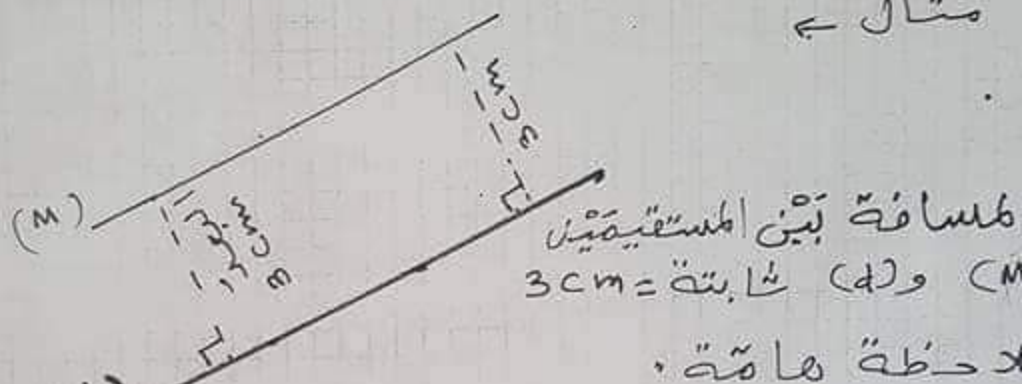 مثال ←
3cm
(M)
3cm
لمسافة بَيْن المستقيمَيْن
(M) و(d) ثابتة = 3cm
هامّة.